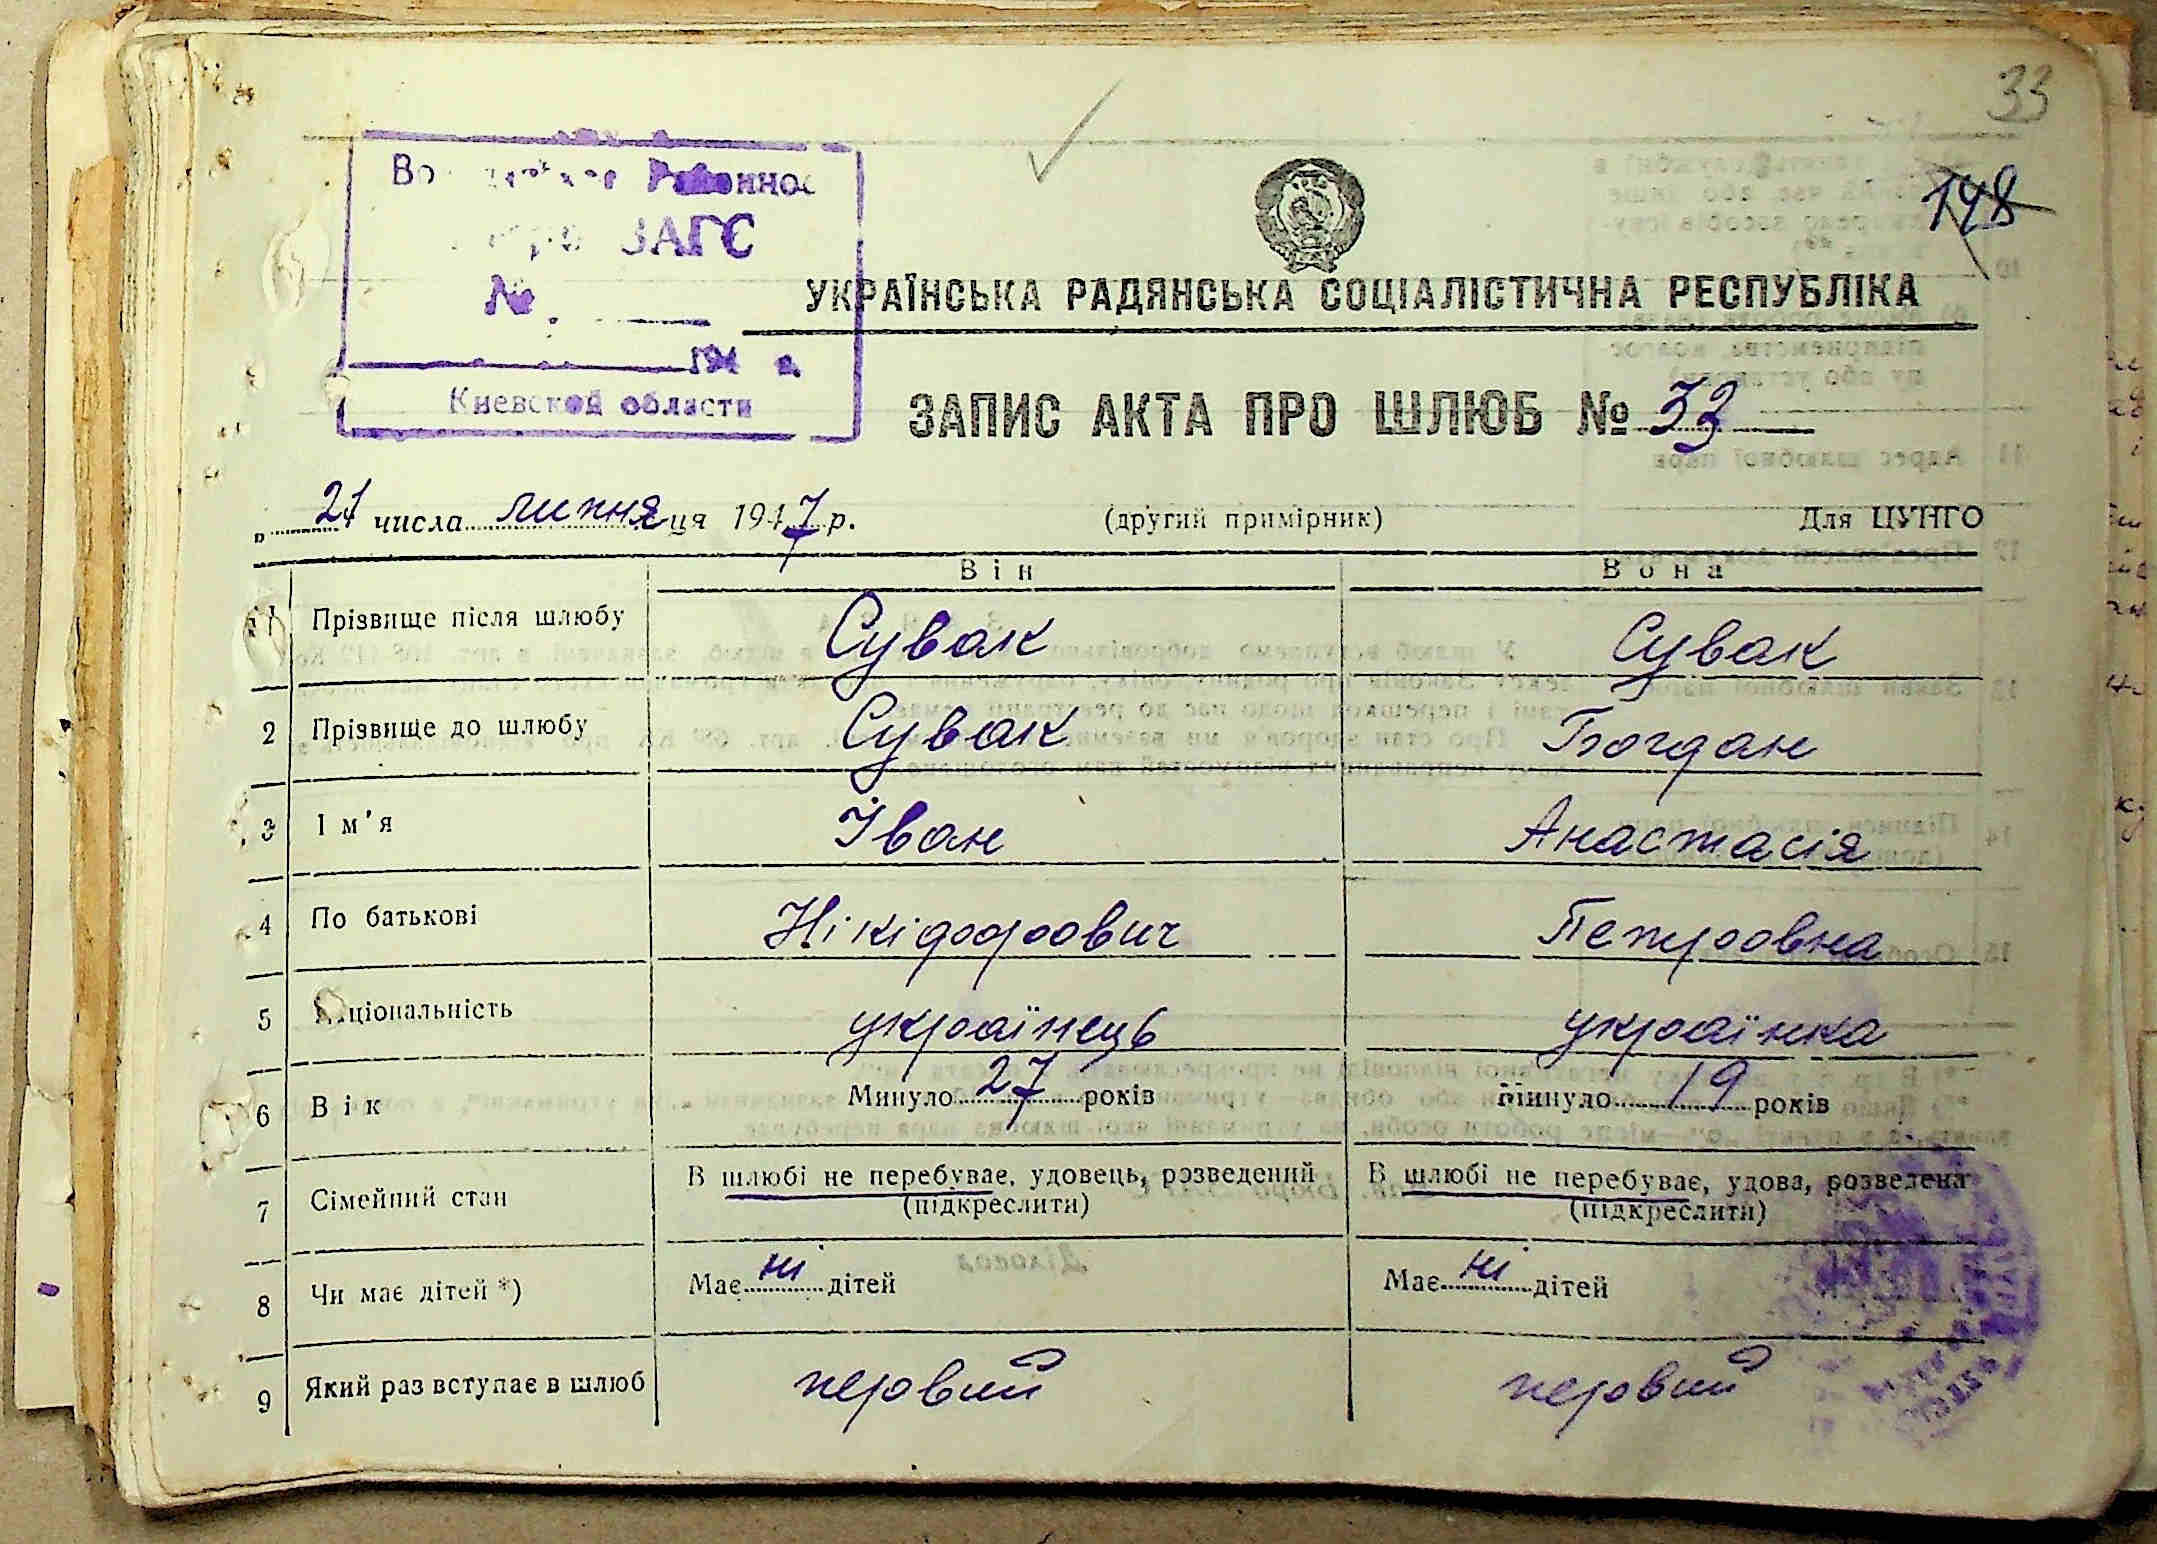 33
148
Районное
ЗАГС
№
194 г.
Киевской области
УКРАЇНСЬКА РАДЯНСЬКА СОЦІАЛІСТИЧНА РЕСПУБЛІКА
ЗАПИС АКТА ПРО ШЛЮБ № 33
„ 21 числа липня ця 1947 р. (другий примірник) Для ЦУНГО
Він Вона
1 Прізвище після шлюбу Сувак Сувак
2 Прізвище до шлюбу Сувак Богдан
3 Ім'я Іван Анастасія
4 По батькові Нікіфорович Петровна
5 Національність українець українка
6 Вік Минуло 27 років Минуло 19 років
7 Сімейний стан В шлюбі не перебуває, удовець, розведений В шлюбі не перебуває, удова, розведена
(підкреслити) (підкреслити)
8 Чи має дітей *) Має ні дітей Має ні дітей
9 Який раз вступає в шлюб первий первий